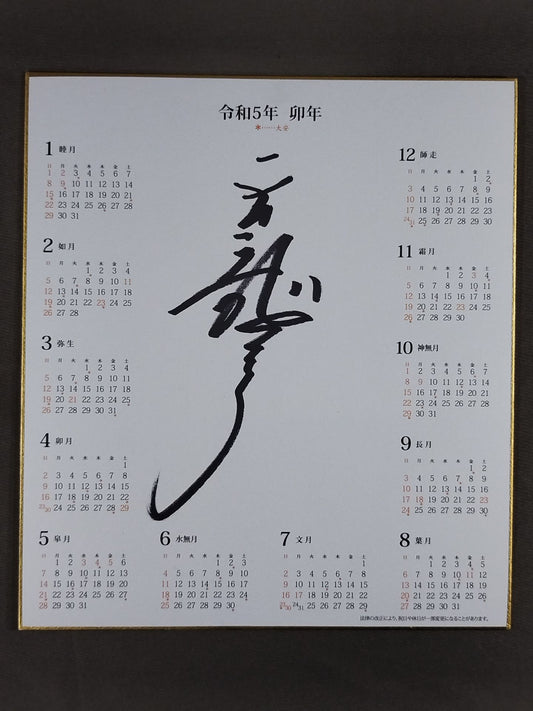 令和5年 卯年
＊……大安
1 睦月
日 月 火 水 木 金 土
1 2 3 4 5 6 7
8 9 10 11 12 13 14
15 16 17 18 19 20 21
22 23 24 25 26 27 28
29 30 31
2 如月
日 月 火 水 木 金 土
1 2 3 4
5 6 7 8 9 10 11
12 13 14 15 16 17 18
19 20 21 22 23 24 25
26 27 28
3 弥生
日 月 火 水 木 金 土
1 2 3 4
5 6 7 8 9 10 11
12 13 14 15 16 17 18
19 20 21 22 23 24 25
26 27 28 29 30 31
4 卯月
日 月 火 水 木 金 土
1
2 3 4 5 6 7 8
9 10 11 12 13 14 15
16 17 18 19 20 21 22
23/30 24 25 26 27 28 29
5 皐月
日 月 火 水 木 金 土
1 2 3 4 5 6
7 8 9 10 11 12 13
14 15 16 17 18 19 20
21 22 23 24 25 26 27
28 29 30 31
6 水無月
日 月 火 水 木 金 土
1 2 3
4 5 6 7 8 9 10
11 12 13 14 15 16 17
18 19 20 21 22 23 24
25 26 27 28 29 30
7 文月
日 月 火 水 木 金 土
1
2 3 4 5 6 7 8
9 10 11 12 13 14 15
16 17 18 19 20 21 22
23/30 24/31 25 26 27 28 29
8 葉月
日 月 火 水 木 金 土
1 2 3 4 5
6 7 8 9 10 11 12
13 14 15 16 17 18 19
20 21 22 23 24 25 26
27 28 29 30 31
9 長月
日 月 火 水 木 金 土
1 2
3 4 5 6 7 8 9
10 11 12 13 14 15 16
17 18 19 20 21 22 23
24 25 26 27 28 29 30
10 神無月
日 月 火 水 木 金 土
1 2 3 4 5 6 7
8 9 10 11 12 13 14
15 16 17 18 19 20 21
22 23 24 25 26 27 28
29 30 31
11 霜月
日 月 火 水 木 金 土
1 2 3 4
5 6 7 8 9 10 11
12 13 14 15 16 17 18
19 20 21 22 23 24 25
26 27 28 29 30
12 師走
日 月 火 水 木 金 土
1 2
3 4 5 6 7 8 9
10 11 12 13 14 15 16
17 18 19 20 21 22 23
24/31 25 26 27 28 29 30
法律の改正により、祝日や休日が一部変更になることがあります。